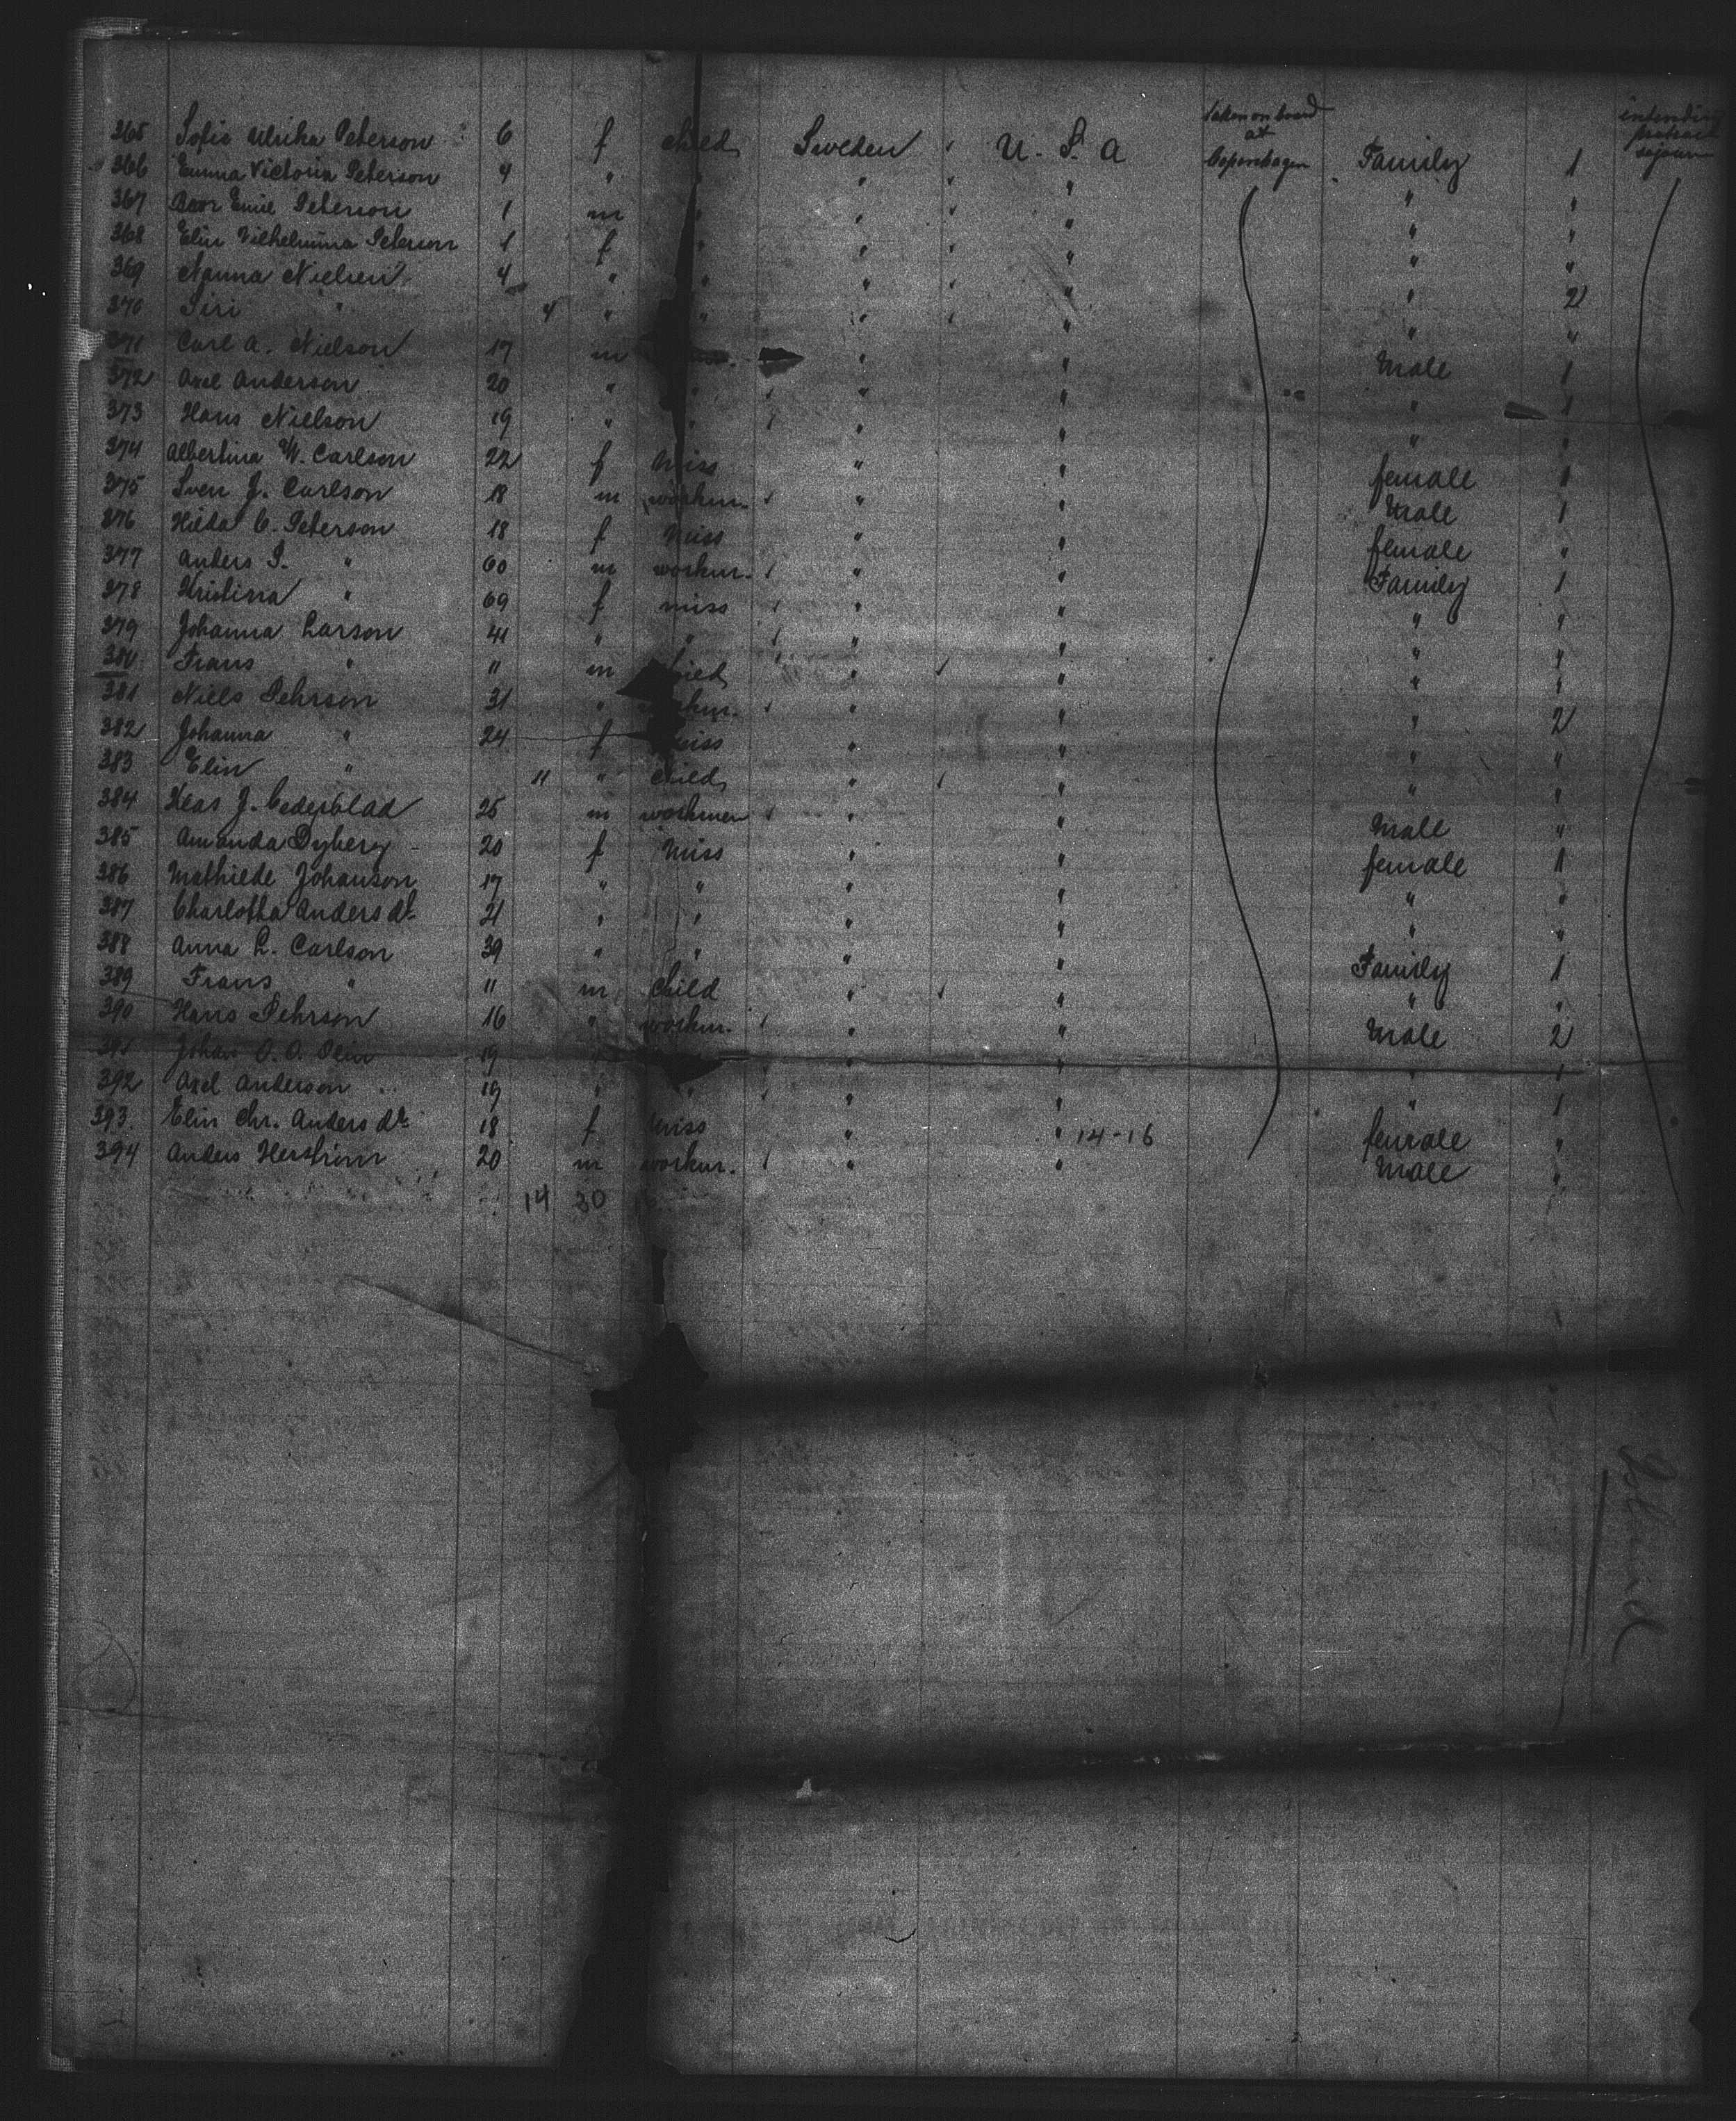 taken on board
at
Copenhagen
intending
protract
sojourn
365 Sofie Ulrika Peterson 6 f child Sweden U. S. A Family 1
366 Emma Victoria Peterson 4 " " " " " "
367 Emil Peterson 1 m " " " " "
368 Elin Vilhelmina Peterson 1 f " " " " "
369 Nanna Nielsen 4 " " " " " 2
370 Siri " 4 " " " " " "
371 Carl A. Nielson 17 m " " Male 1
372 Axel Anderson 20 " " " " " 1
373 Hans Nielson 19 " " " " " 1
374 Albertina W. Carlson 22 f Miss " " female 1
375 Sven J. Carlson 18 m workm. " " Male 1
376 Hilda C. Peterson 18 f Miss " " female "
377 Anders S. " 60 m workm. " " Family 1
378 Kristina " 69 f miss " " " "
379 Johanna Larson 41 " " " " " "
380 Frans " 11 m " " " "
381 Niels Pehrson 31 " " " " 2
382 Johanna " 24 f Miss " " " "
383 Elin " 11 " child " " " "
384 Klas J. Cederblad 25 m workmen " " Male "
385 Amanda Dyberg 20 f Miss " " female 1
386 Mathilde Johanson 17 " " " " " "
387 Charlotta Anders dt. 21 " " " " " "
388 Anna L. Carlson 39 " " " " Family 1
389 Frans " 11 m Child " " " "
390 Hans Pehrson 16 " workm. " " Male 2
391 Johan O. A. Olin 19 " " " " 1
392 Axel Anderson 19 " " " " " 1
393. Elin Chr. Anders dt. 18 f Miss " " 14-16 female "
394 Anders 20 m workm. " " Male "
14 30